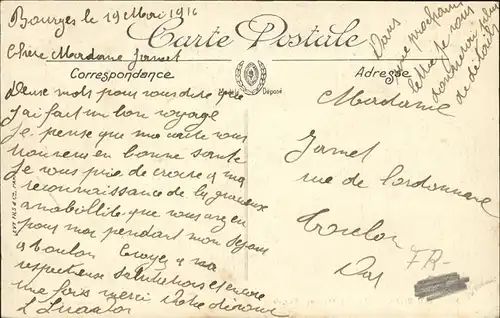 Bourges le 19 Mai 1916
Carte Postale
Chère Madame Jamet
Correspondance
Adresse
Déposé
Dans
une prochaine
lettre je vous
donnerai plus
de détails
Deux mots pour vous dire que
J'ai fait un bon voyage
Je pense que ma carte vous
trouvera en bonne santé
Je vous prie de croire a ma
reconnaissance de la gracieuse
amabilité que vous avez eu
pour moi pendant mon séjour
a Toulon Croyez a ma
respectueuse salutations et encore
une fois merci Votre dévoué
Madame
Jamet
rue de Lordonnance
Toulon
Var
7R-